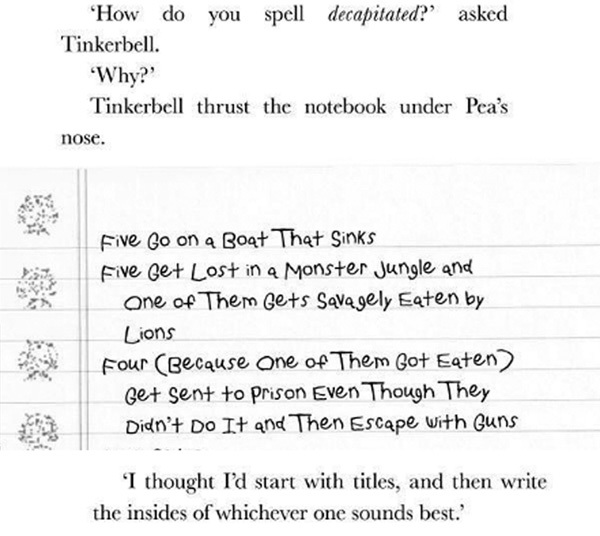 ‘How do you spell decapitated?’ asked
Tinkerbell.
‘Why?’
Tinkerbell thrust the notebook under Pea’s
nose.
Five Go on a Boat That Sinks
Five Get Lost in a Monster Jungle and
One of Them Gets Savagely Eaten by
Lions
Four (Because One of Them Got Eaten)
Get Sent to Prison Even Though They
Didn't Do It and Then Escape with Guns
‘I thought I’d start with titles, and then write
the insides of whichever one sounds best.’